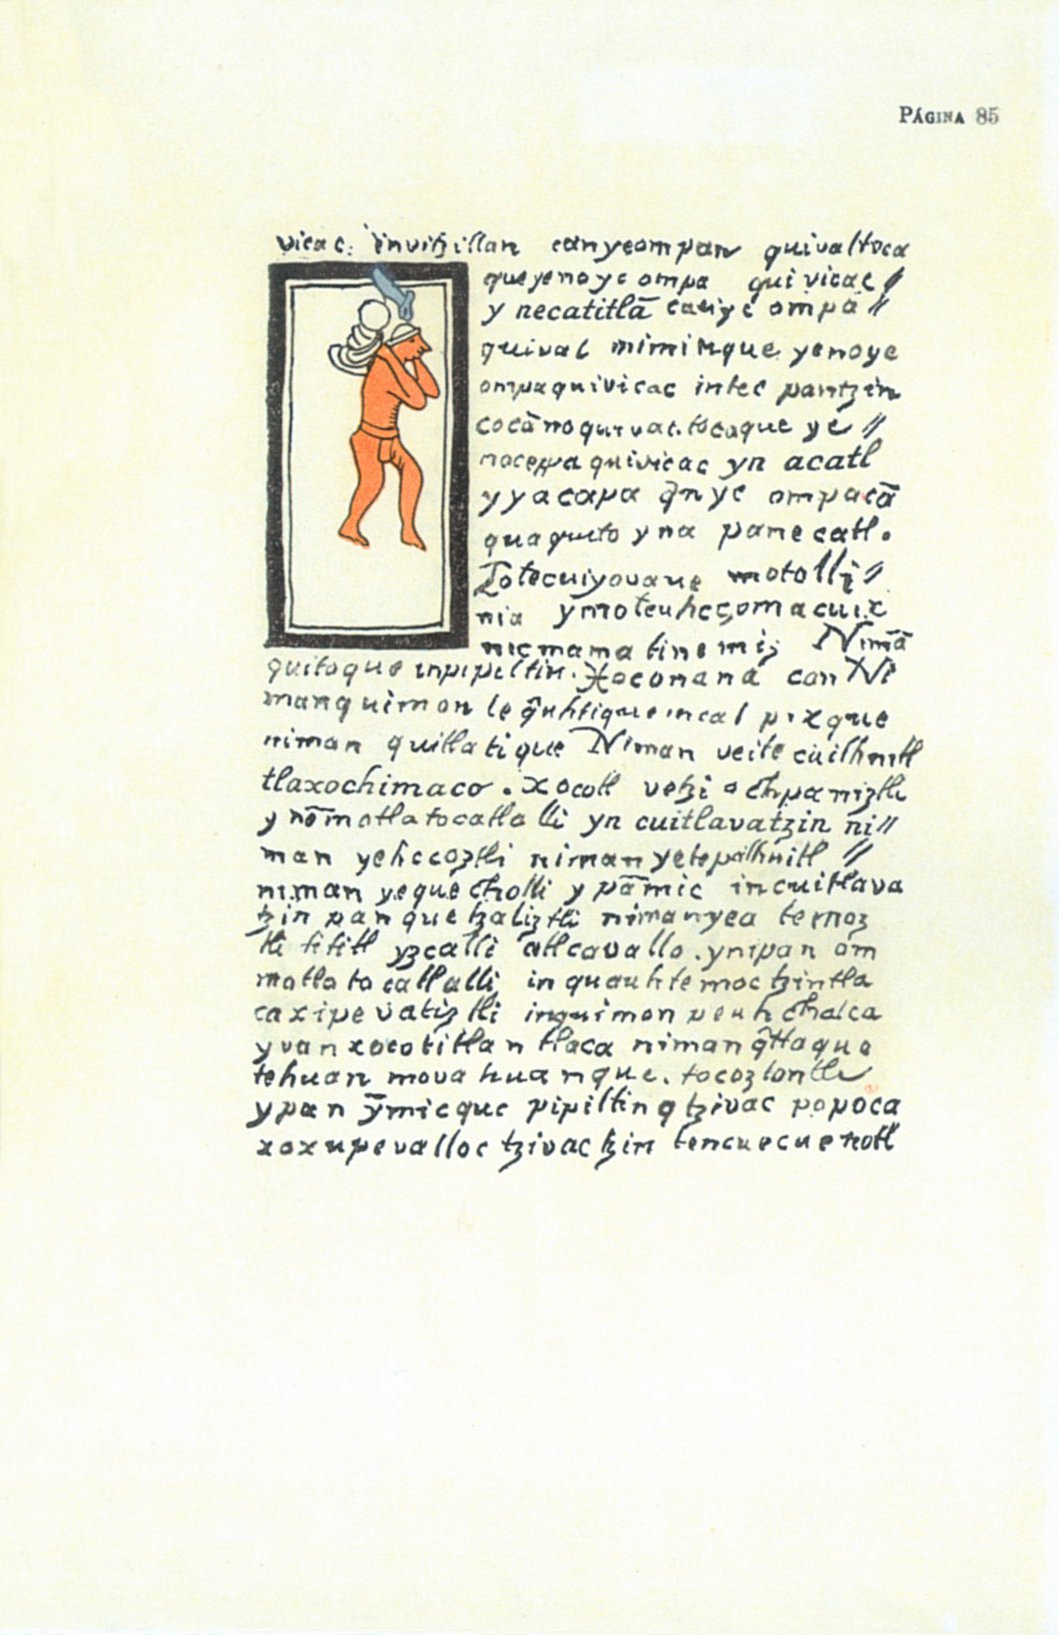 PÁGINA 85
vicac. invitzillan canyeompan quivaltoca
queyenoyc ompa quivicac //
y necatitlā caniyc ompa //
quival miminque yenoye
ompaquivicac intec pantzin
cocā noquivac.tocaque ye //
noceppa quivicac yn acatl
yyacapa q̄nyc ompacā
quaquito yna panecatl.
Totecuiyovane motolli //
nia ymoteuhcçomacuix
nicmama tinemiz Nimā
quitoque inpipiltin. Xoconana can Ni
manquimon le q̄uhtique incal pixque
niman quitlatique Niman veitecuilhuitl
tlaxochimaco. xocotl vetzi ochpaniztli
y nōmotlatocatlalli yn cuitlavatzin ni //
man yehccoztli niman yetepailhuitl //
niman yequecholli y pāmic incuitlava
tzin panquetzaliztli nimanyea temoz
tli tititl yzcalli atlcavallo. ynipan om
motlatocatlalli in quauhtemoctzintla
caxipevaliztli inquimon peuh chalca
yvan xocotitlan tlaca niman q̄ttaque
tehuan movahuanque. tocoztontli
ypan ȳmicque pipiltin q tzivac popoca
xoxupevalloc tzivactzin tencuecuenotl